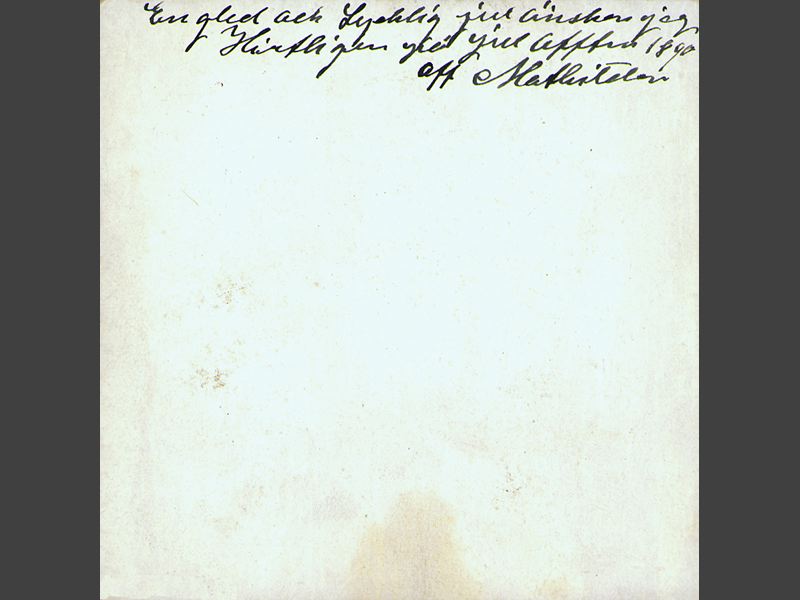 En gled ock Lycklig jul önskar jag
Hirtligen på Jul Afften 1890
aff Mathilda